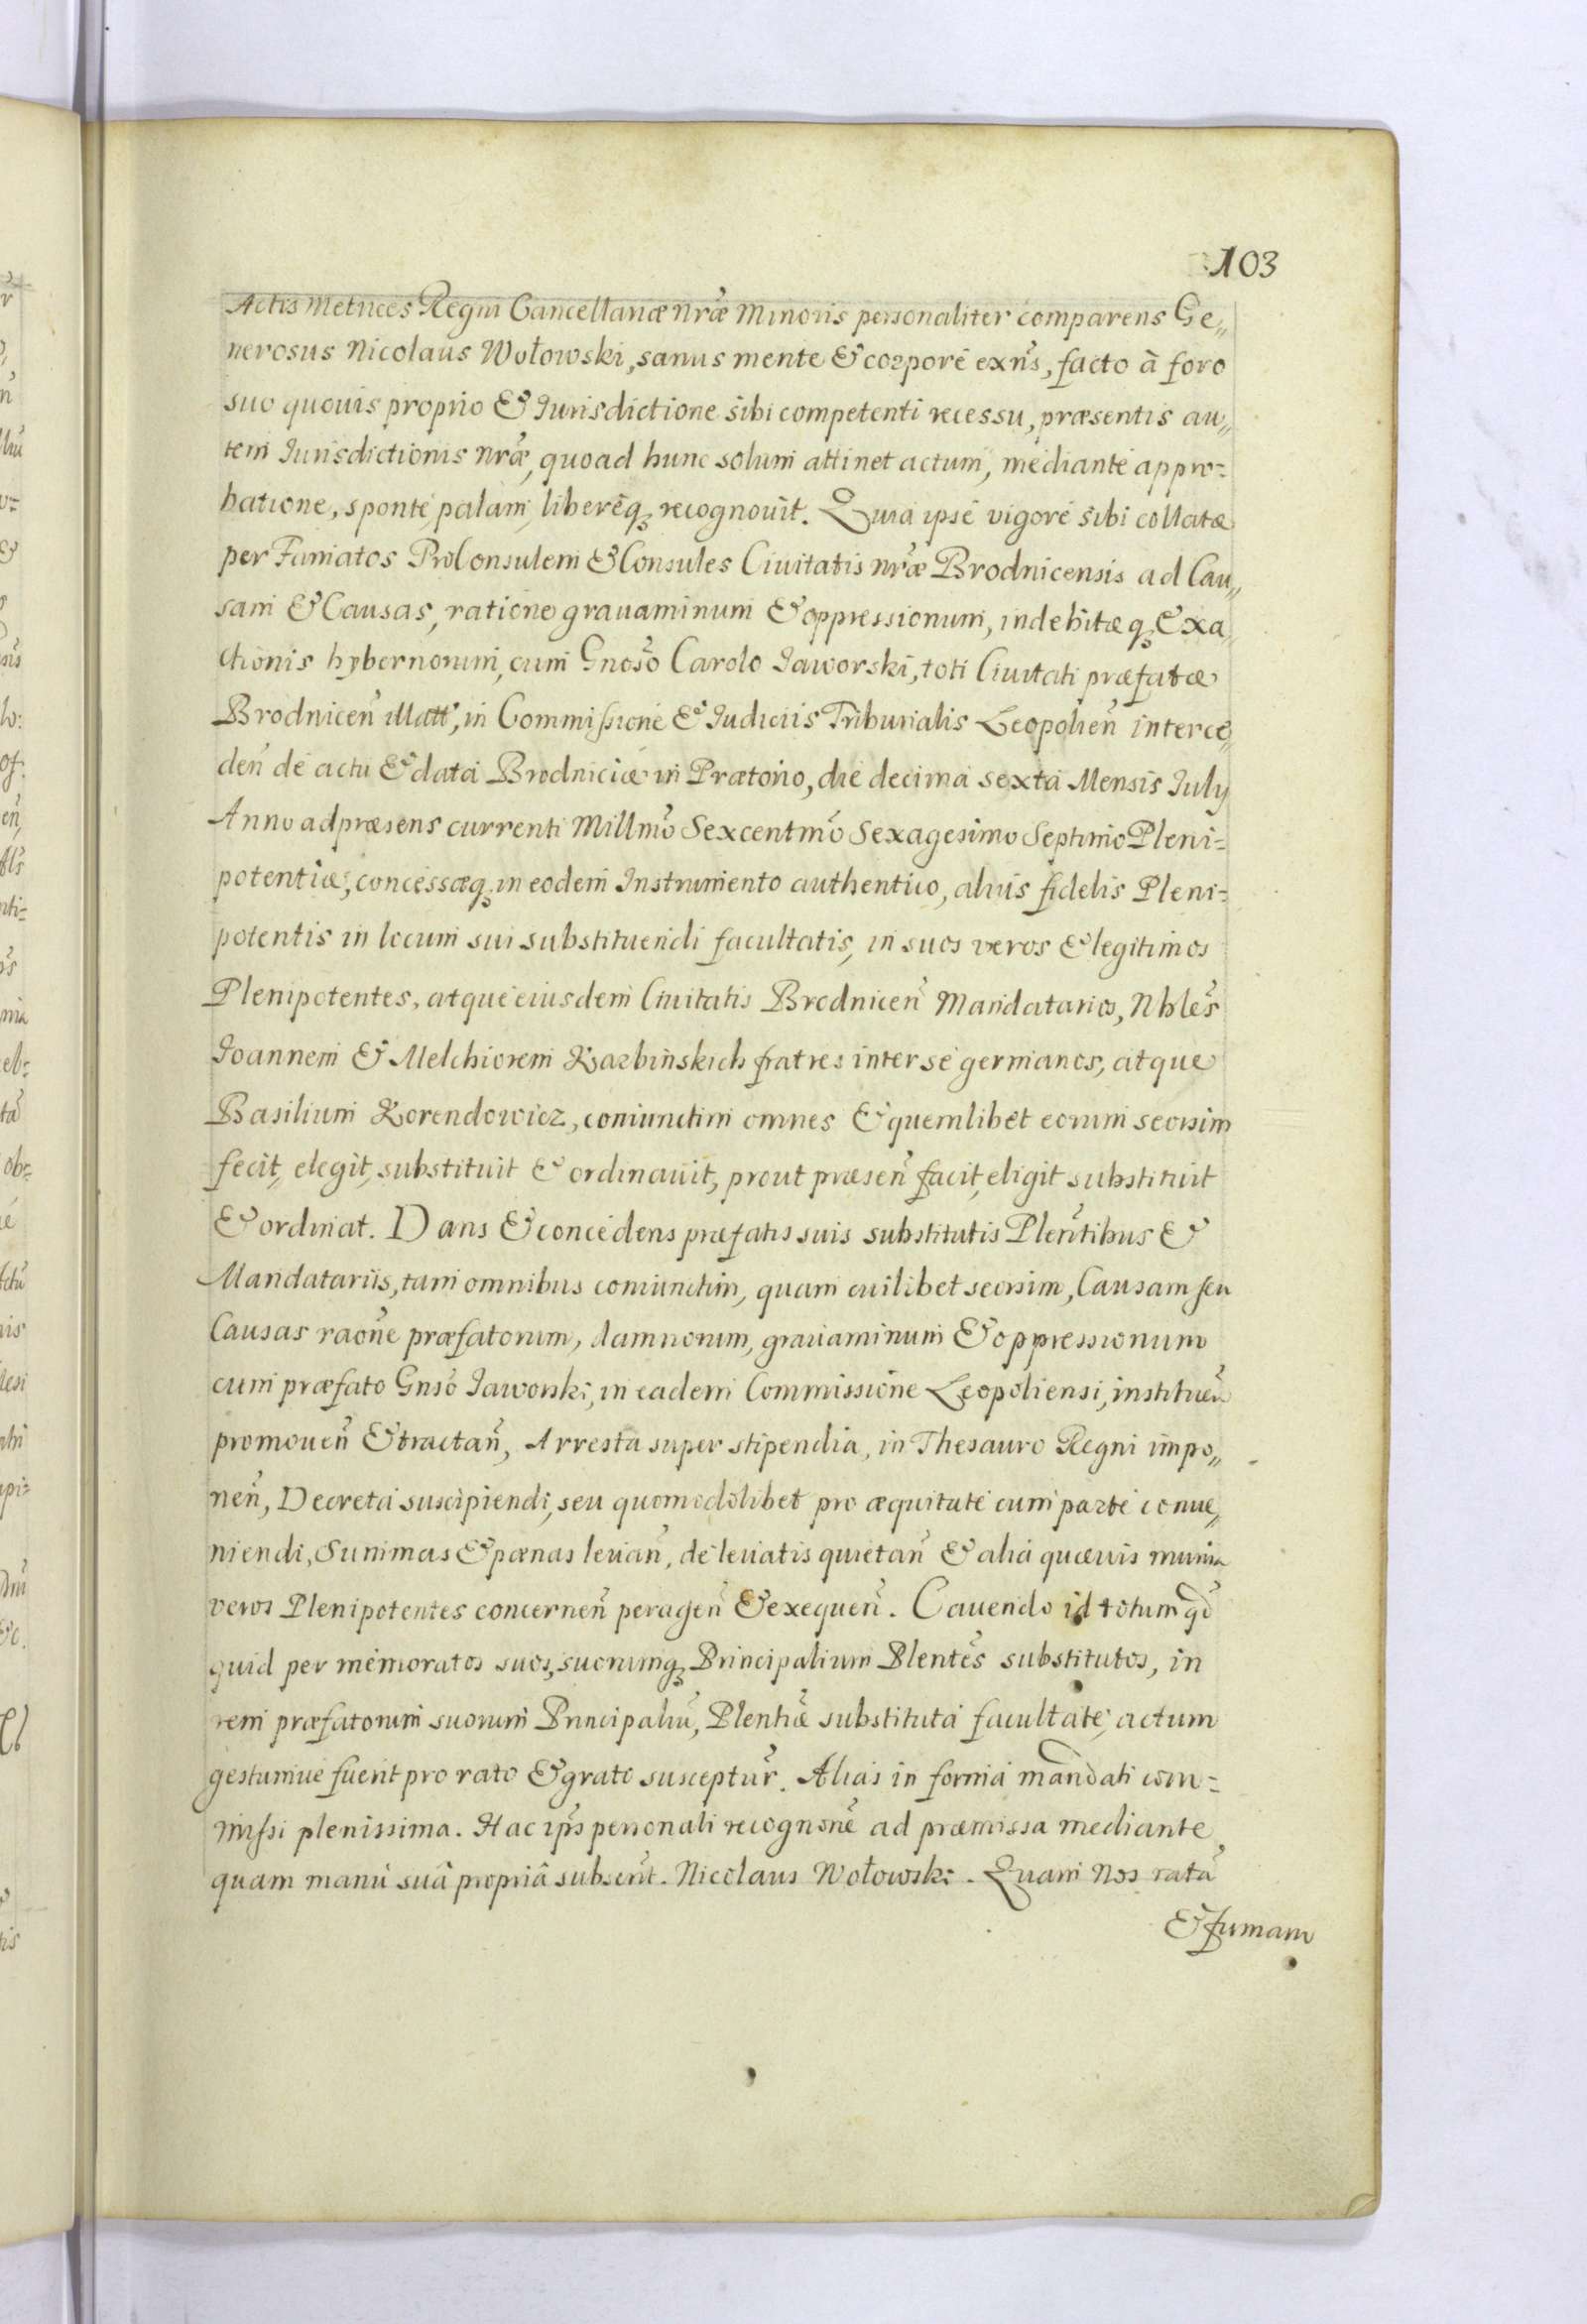 103
Actis Metrices Regni Cancellariæ nr̃æ Minoris personaliter comparens Ge„
nerosus Nicolaus Wołowski, sanus mente & corpore exñs, facto à foro
suo quouis proprio & Iurisdictione sibi competenti recessu, præsentis au„
tem Iurisdictionis nr̃æ, quoad hunc solum attinet actum, mediante appro=
batione, sponte, palam, libereq́ȝ recognovit. Quia ipse vigore sibi collatæ
per Famatos ProConsulem & Consules Civitatis nr̃æ Brodnicensis ad Cau„
sam & Causas, ratione grauaminum & oppressionum, indebitæqȝ Exa„
ctionis hybernorum, cum Gnoso Carolo Iaworski, toti Civitati præfatæ
Brodnicen̄ illatt, in Commissione & Iudiciis Tribunalis Leopolien̄ interce„
den̄ de actu & data Brodniciæ in Prætorio, die decima sexta Mensis July
Anno ad præsens currenti Millmo Sexcentmo Sexagesimo Septimo Pleni=
potentiæ, concessæqȝ in eodem Instrumento authentico, alius fidelis Pleni=
potentis in locum sui substituendi facultatis, in suos veros & legitimos
Plenipotentes, atque eiusdem Civitatis Brodnicen̄ Mandatarios, Nbles
Ioannem & Melchiorem Karbinskich fratres inter se germanos, atque
Basilium Korendowicz, coniunctim omnes & quemlibet eorum seorsim
fecit, elegit, substituit & ordinauit, prout præsen̄ facit, eligit substituit
& ordinat. Dans & concedens præfatis suis substitutis Plen̄tibus &
Mandatariis, tam omnibus coniunctim, quam cuilibet seorsim, Causam seu
Causas raone præfatorum, damnorum, grauaminum & oppressionum
cum præfato Gnso Iaworski, in eadem Commissione Leopoliensi, instituen̄
promouen̄ & tractan̄, Arresta super stipendia, in Thesauro Regni impo„
nen̄, Decreta suscipiendi, seu quomodolibet pro æquitate cum parte conue„
niendi, Summas & pænas leuan̄, de leuatis quietan̄ & alia quæuis munia
veros Plenipotentes concernen̄ peragen̄ & exequen̄. Cauendo id totum qd
quid per memoratos suos, suorumqȝ Principalium Plentes substitutos, in
rem præfatorum suorum Principaliū, Plentiæ substituta facultate, actum
gestumue fuerit pro rato & grato susceptur̄. Alias in forma mandati com=
missi plenissima. Hac ip̄s personali recognone ad præmissa mediante
quam manu suâ propriâ subscrt. Nicolaus Wołowski. Quam Nos ratā
& firmam